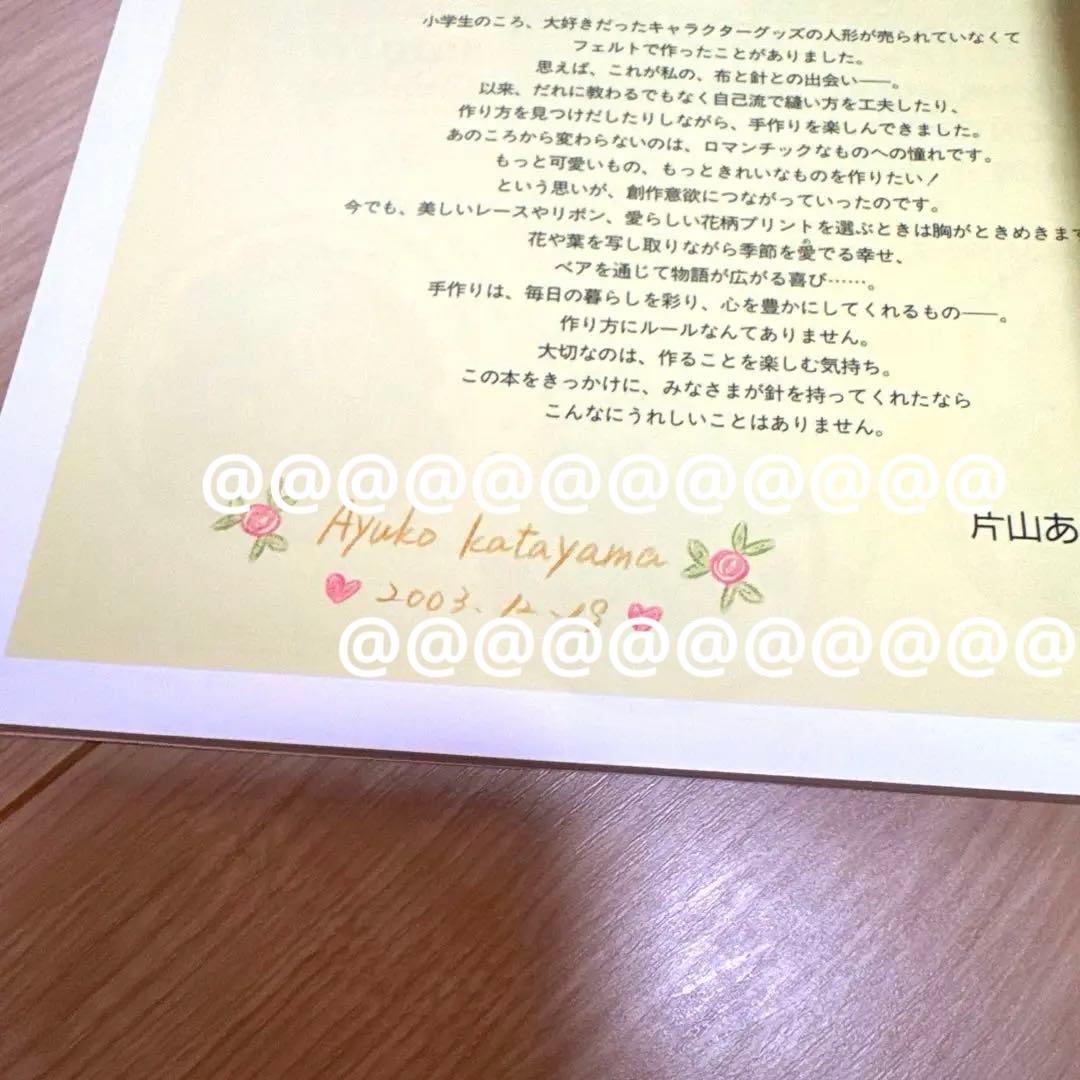 小学生のころ、大好きだったキャラクターグッズの人形が売られていなくて
フェルトで作ったことがありました。
思えば、これが私の、布と針との出会い──。
以来、だれに教わるでもなく自己流で縫い方を工夫したり、
作り方を見つけだしたりしながら、手作りを楽しんできました。
あのころから変わらないのは、ロマンチックなものへの憧れです。
もっと可愛いもの、もっときれいなものを作りたい！
という思いが、創作意欲につながっていったのです。
今でも、美しいレースやリボン、愛らしい花柄プリントを選ぶときは胸がときめきます
花や葉を写し取りながら季節を愛でる幸せ、
ベアを通じて物語が広がる喜び……。
手作りは、毎日の暮らしを彩り、心を豊かにしてくれるもの──。
作り方にルールなんてありません。
大切なのは、作ることを楽しむ気持ち。
この本をきっかけに、みなさまが針を持ってくれたなら
こんなにうれしいことはありません。
@@@@@@@@@@@@
片山あ
Ayuko Katayama
2003.12.19
@@@@@@@@@@@